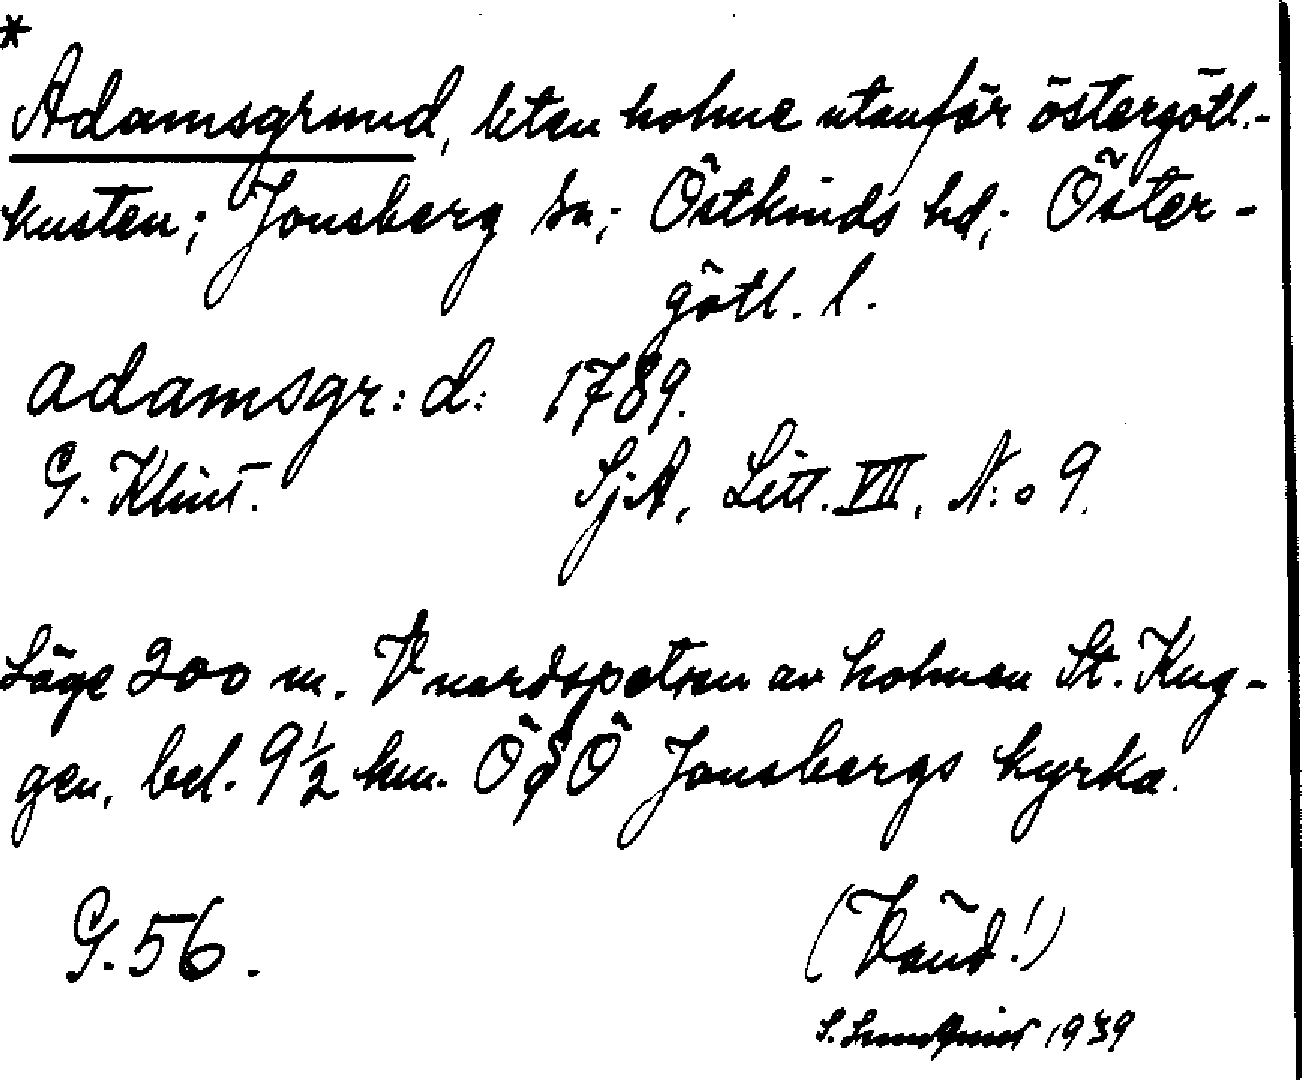 *
Adamsgrund, liten holme utanför östergötl.-
kusten; Jonsberg sn; Östkinds hd; Öster-
götl. l.
adamsgr:d: 1789.
G. Klint. SjA, Litt. VII, N:o 9.
Läge 200 m. V nordspetsen av holmen St. Kug-
gen, bel. 9 1/2 km. ÖSÖ Jonsbergs kyrka.
G. 56. (Vänd!)
S. 1939